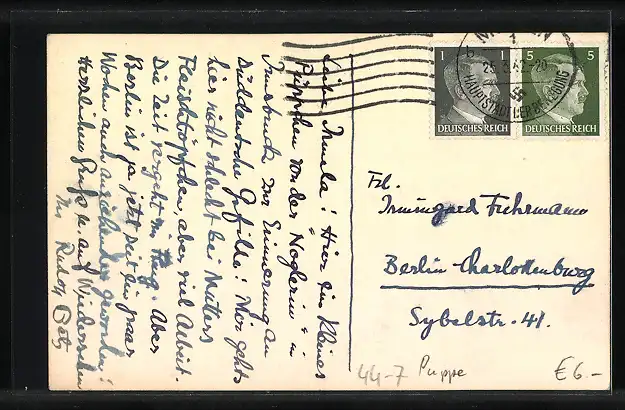 Liebe Irmela! Hier ein kleines
Püppchen von der Noglerin in
Innsbruck zur Erinnerung an
Süddeutsche Gefilde! Mir gehts
hier nicht schlecht bei Mutters
Fleischtöpfchen, aber viel Arbeit.
Die Zeit vergeht im Flug. Aber
Berlin ist ja jetzt seit ein paar
Wochen auch anziehender geworden!
Herzlichen Gruß u. auf Wiedersehen
Ihr Rudolf
1 1
DEUTSCHES REICH
5 5
DEUTSCHES REICH
HAUPTSTADT DER BEWEGUNG
Frl.
Irmingard Fuhrmann
Berlin-Charlottenburg
Sybelstr. 41.
44-7 Puppe €6.-